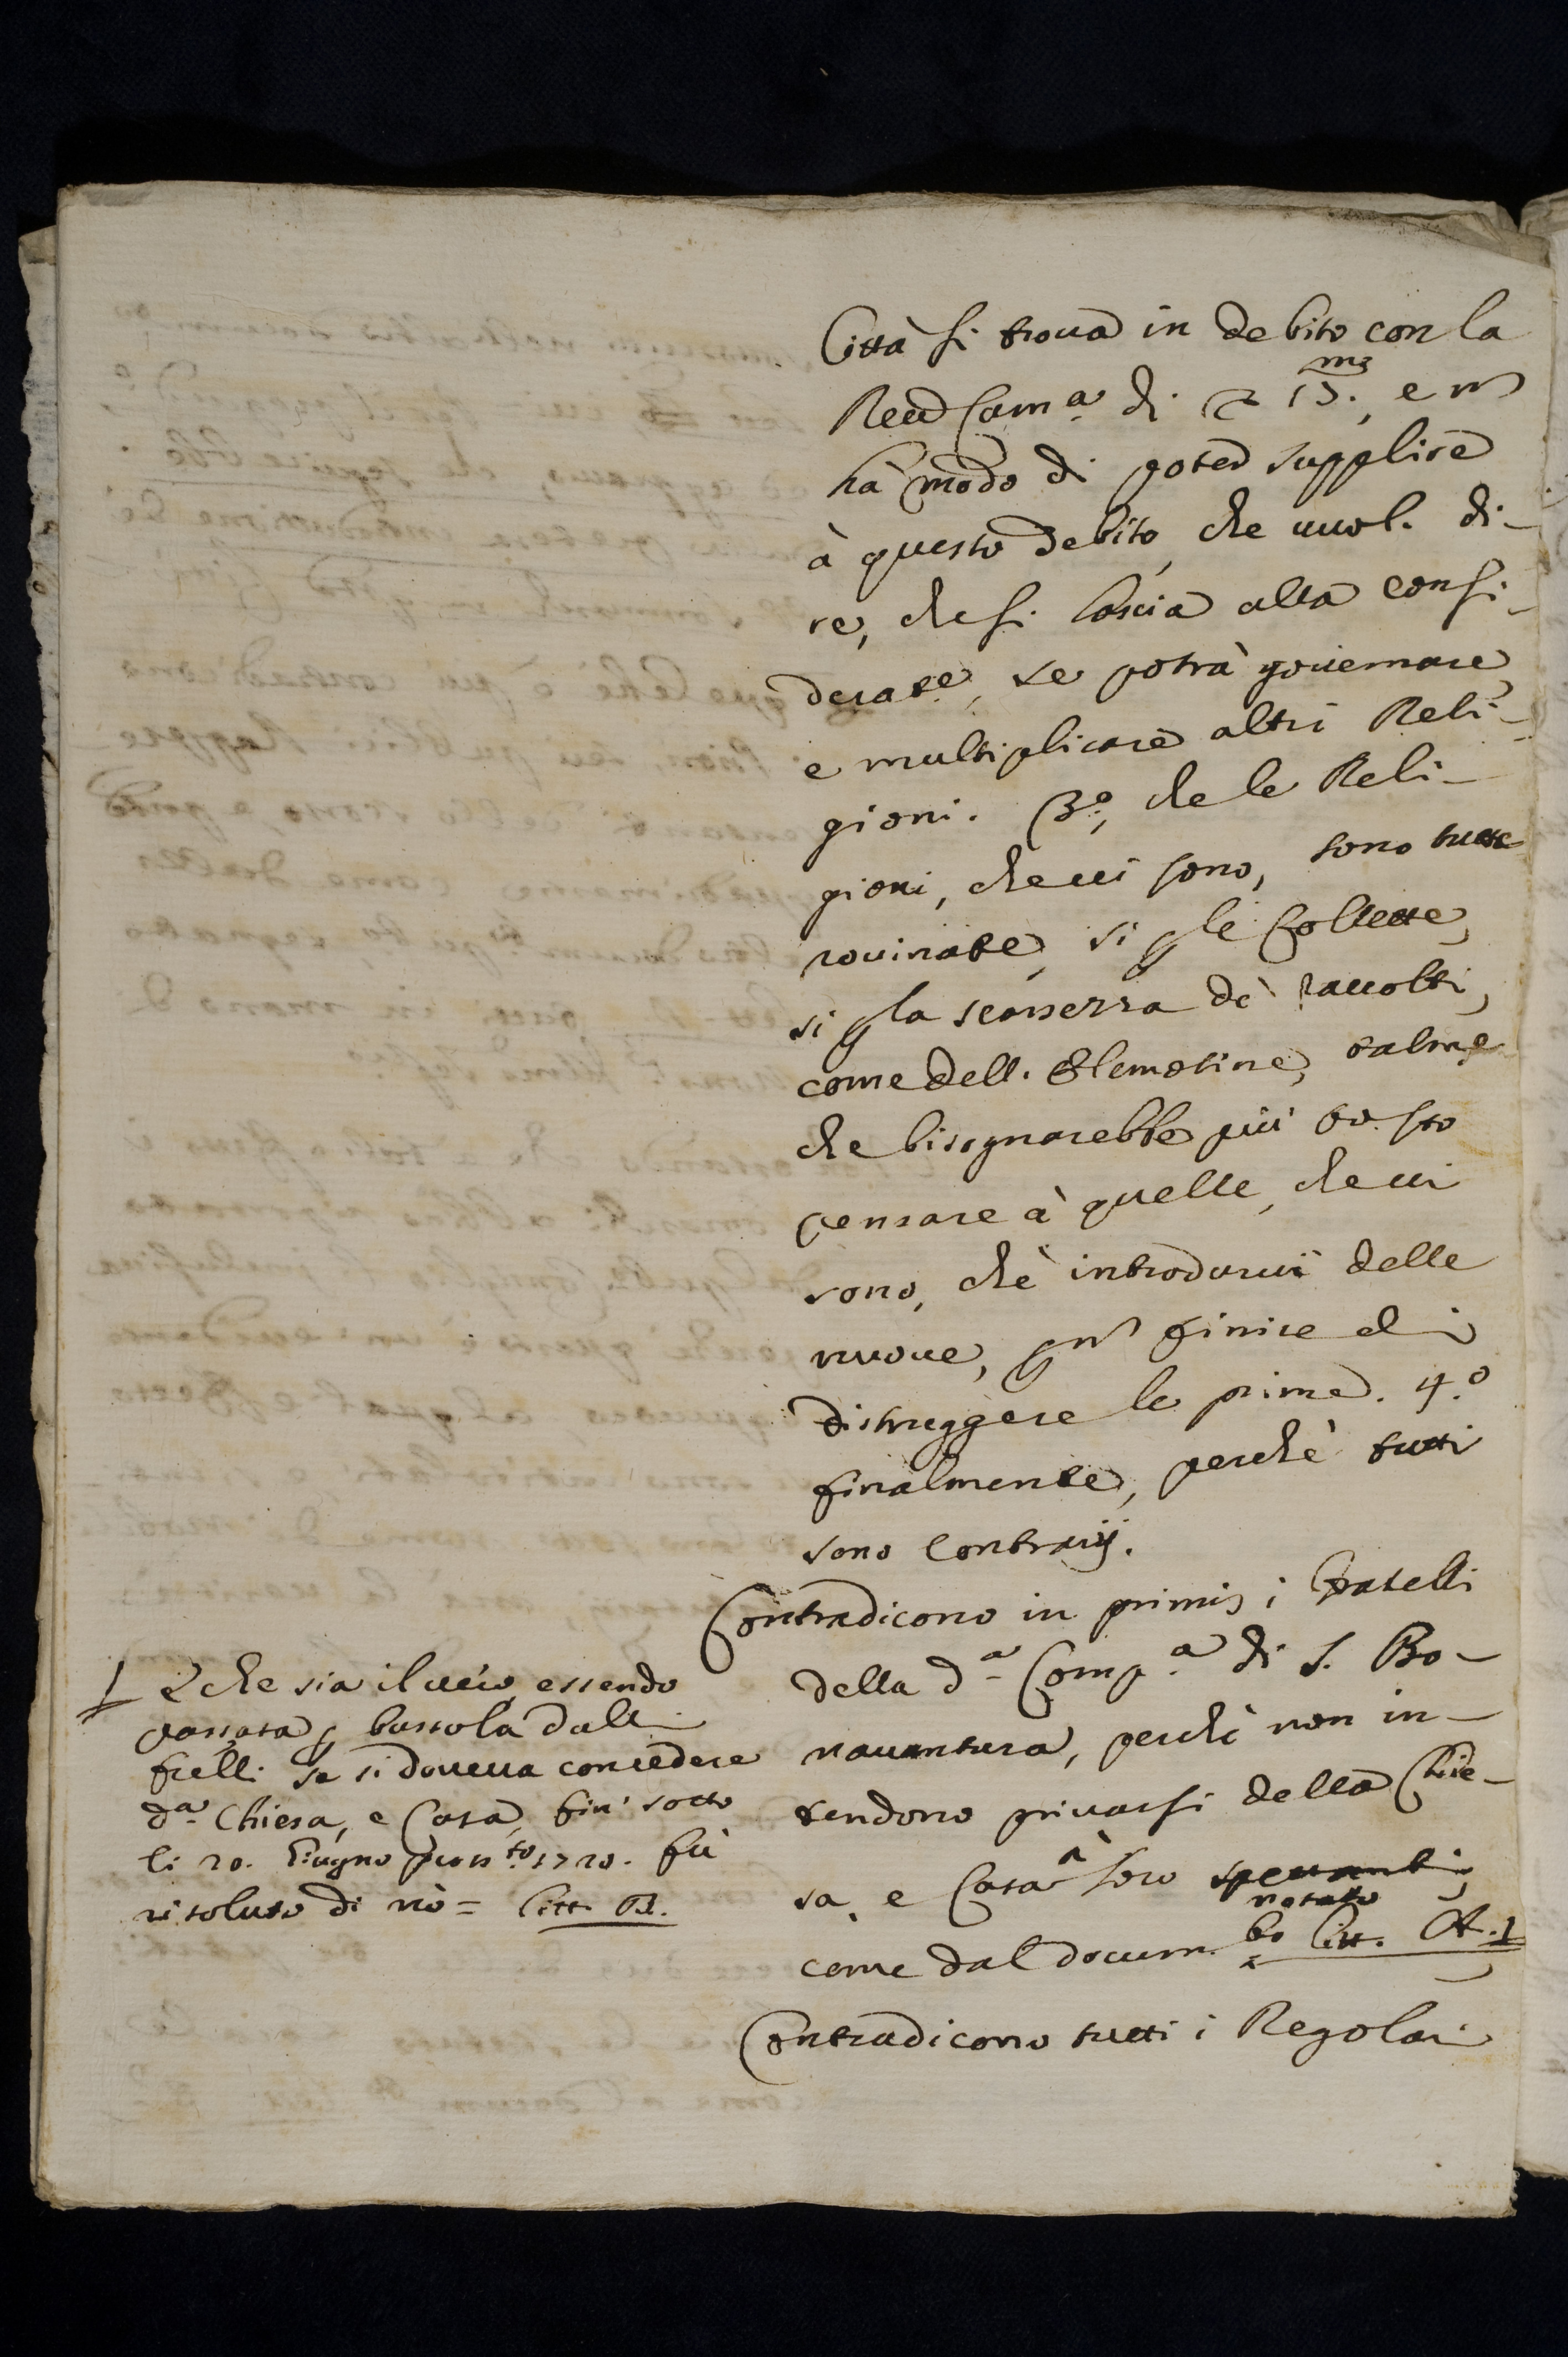 Città si troua in debito con la
Reu Cam.a di 15.m, e nō
hà modo di poter supplire
à questo debito, che uuol. di-
re, che si lascia alla consi-
deraz.e, se potrà gouernare,
e multiplicare altri Reli-
gioni. 3.o, che le Reli-
gioni, che ui sono, sono tutte
rouinate, si p le Collette,
si p la scarsezza dè raccolti,
come dell. Elemosine, talm.e
che bisognarebbe più tosto
pensare à quelle, che ui
sono, chè introdurui delle
nuoue, p nō finire di
distruggere le prime. 4.o
finalmente, perchè tutti
sono Contrarij.
Contradicono in primis i Fratelli
della d.a Comp.a di S. Bo-
nauentura, perchè non in-
tendono priuarsi della Chie-
sa, e Casa à loro spettanti,
come dal docum.to notato Litt. A. †
Contradicono tutti i Regolari
† E che sia il uero, essendo
passata p bussola dalli
frelli se si doueua concedere
d.a Chiesa, e Casa, fin' sotto
li 20. Giugno pross.to 1720. fù
risoluto di nò = Litt. B.